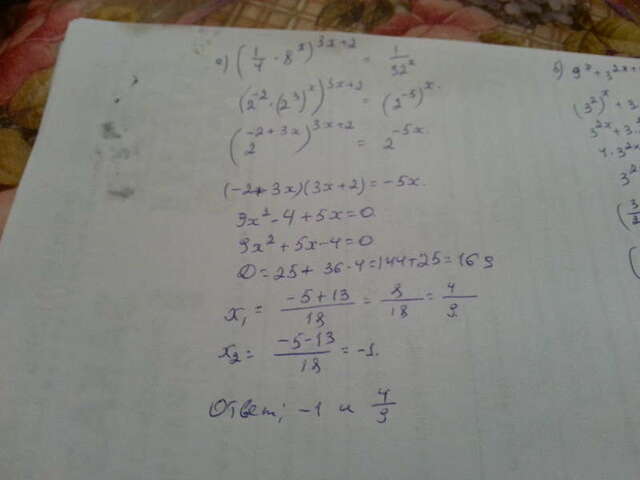 а) (1/4 · 8^x)^(3x+2) = 1/32^x
(2^(-2) · (2^3)^x)^(3x+2) = (2^(-5))^x.
(2^(-2+3x))^(3x+2) = 2^(-5x).
(-2+3x)(3x+2) = -5x.
9x² - 4 + 5x = 0.
9x² + 5x - 4 = 0
D = 25 + 36·4 = 144 + 25 = 169
x₁ = (-5+13)/18 = 8/18 = 4/9.
x₂ = (-5-13)/18 = -1.
Ответ; -1 и 4/9
б) 9^x + 3^(2x+
(3²)^x + 3.
3^(2x) + 3.
4·3^(2x)
3²
(3/2
(